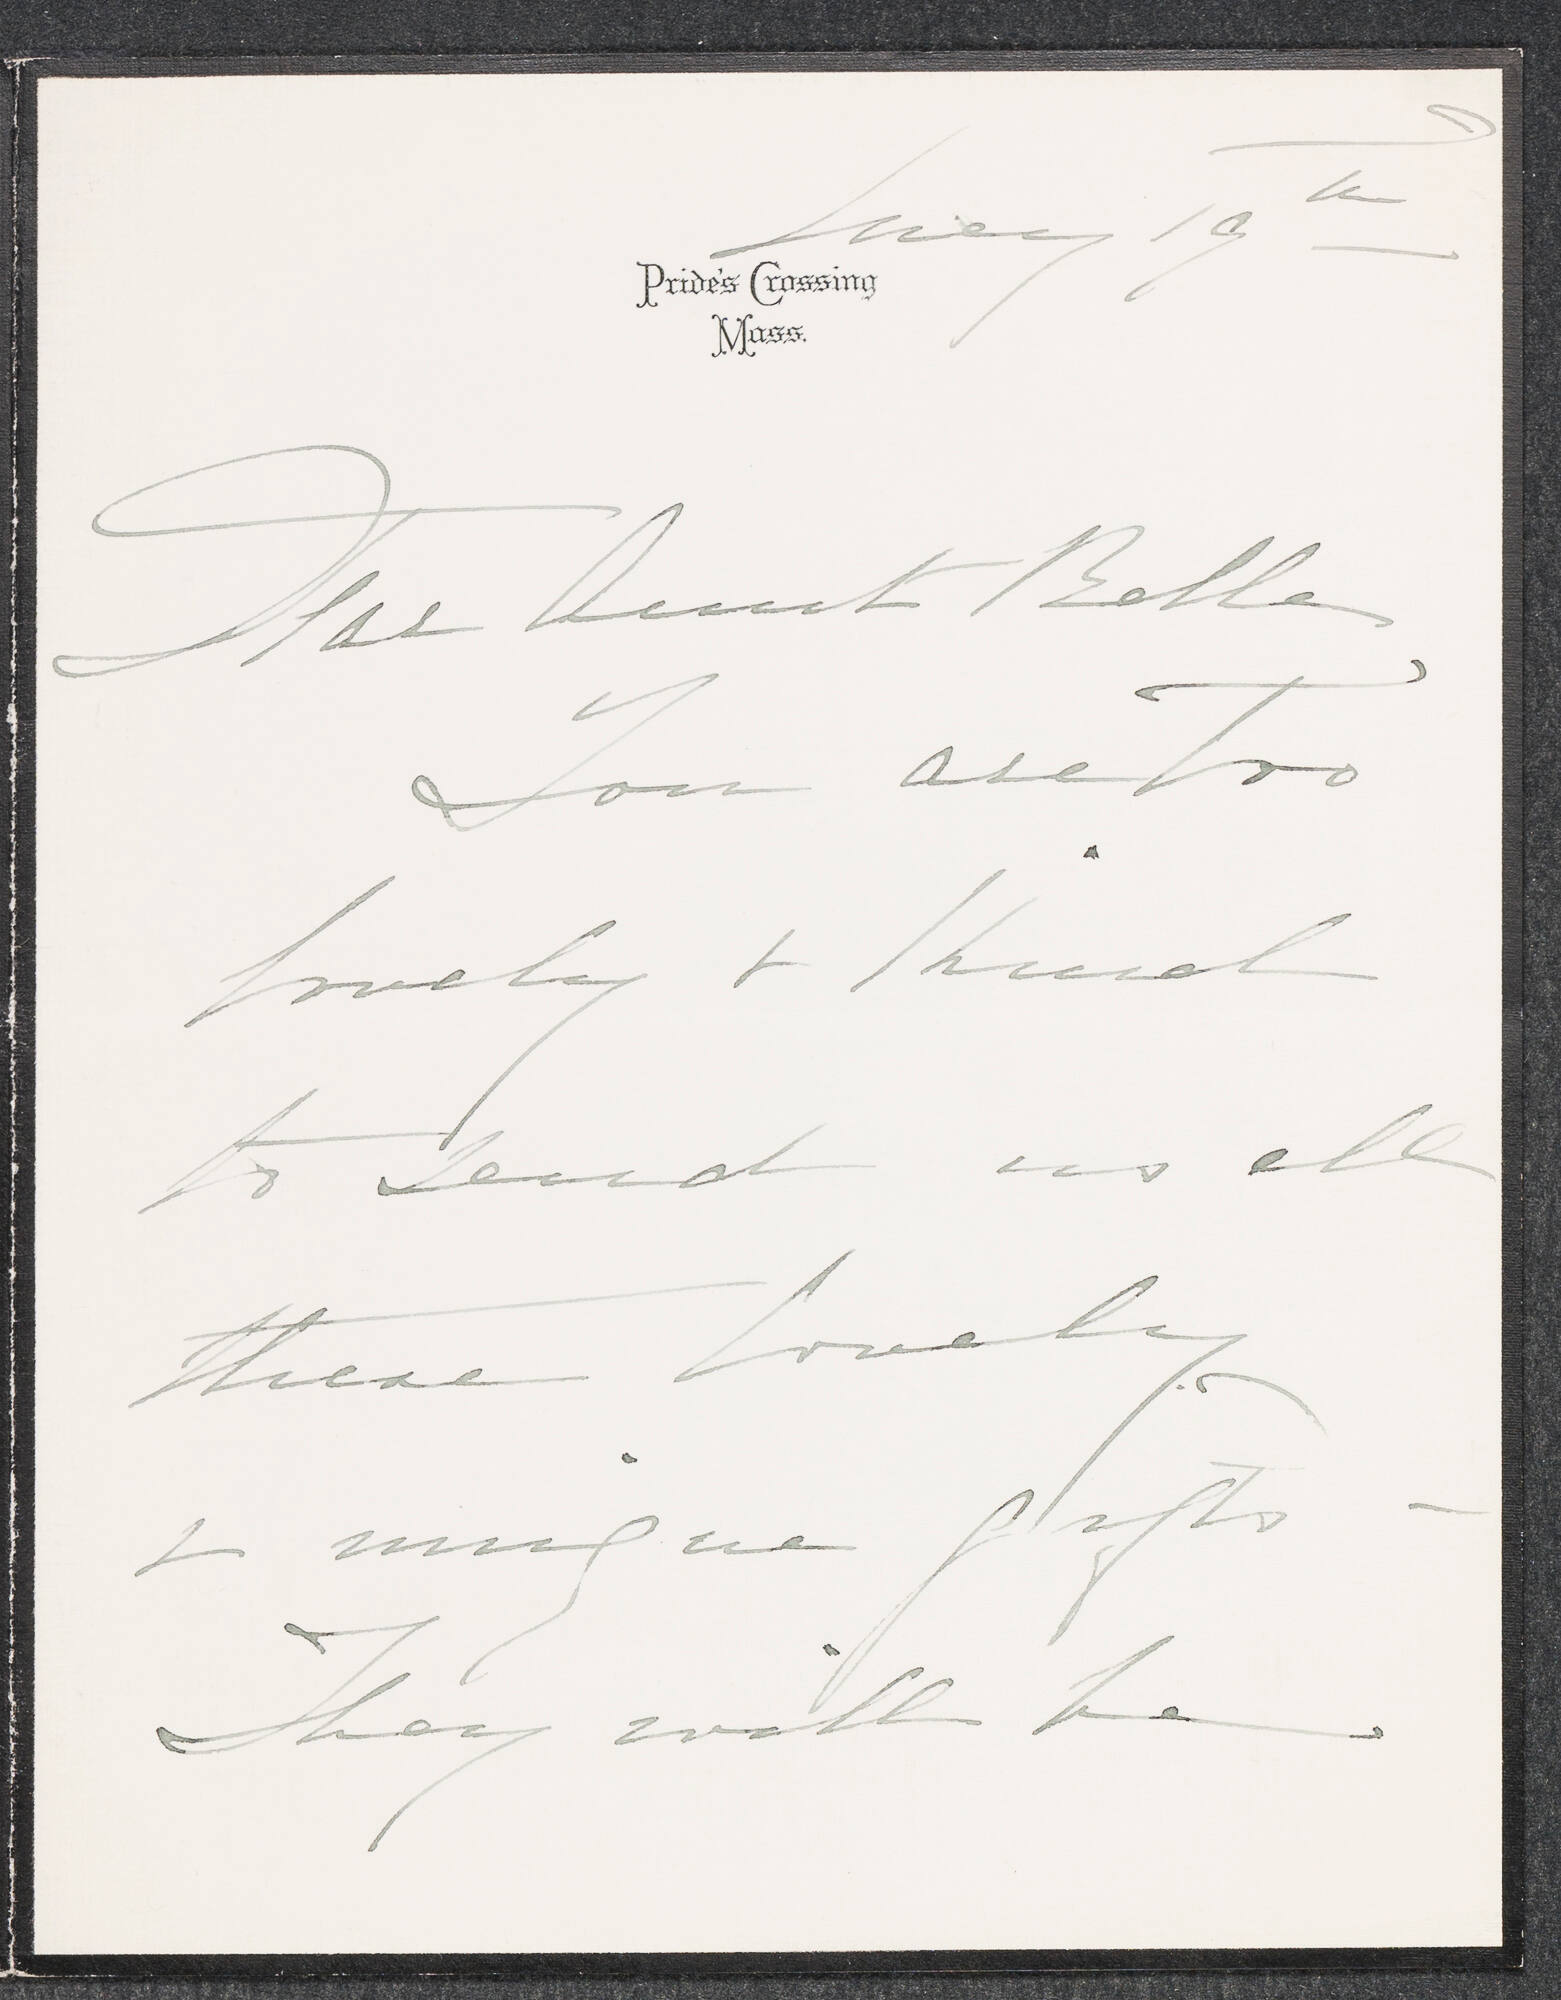 May 19th
Pride's Crossing
Mass.
Dear Aunt Bella
You are too
lovely & kind
to send us all
these lovely
& unique gifts –
They will be